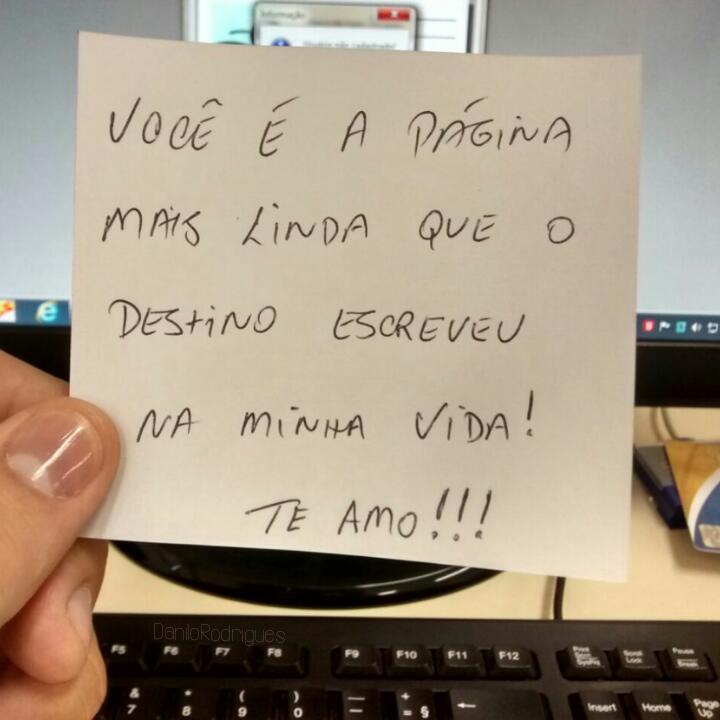 Informação
VOCÊ É A PÁGINA
MAIS LINDA QUE O
DESTINO ESCREVEU
NA MINHA VIDA!
TE AMO!!!
DaniloRodrigues
F5 F6 F7 F8 F9 F10 F11 F12 Print Scrn SysRq Scroll Lock Pause Break
& 7 * 8 ( 9 ) 0 — - + = § ← Insert Home Page Up